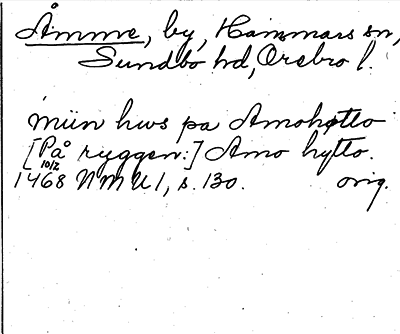 Åmme, by, Hammars sn,
Sundbo hd, Örebro l.
miin hws pa Amohøtto
[På ryggen:] Amo hytto.
1468 10/2 NMU 1, s. 130. orig.